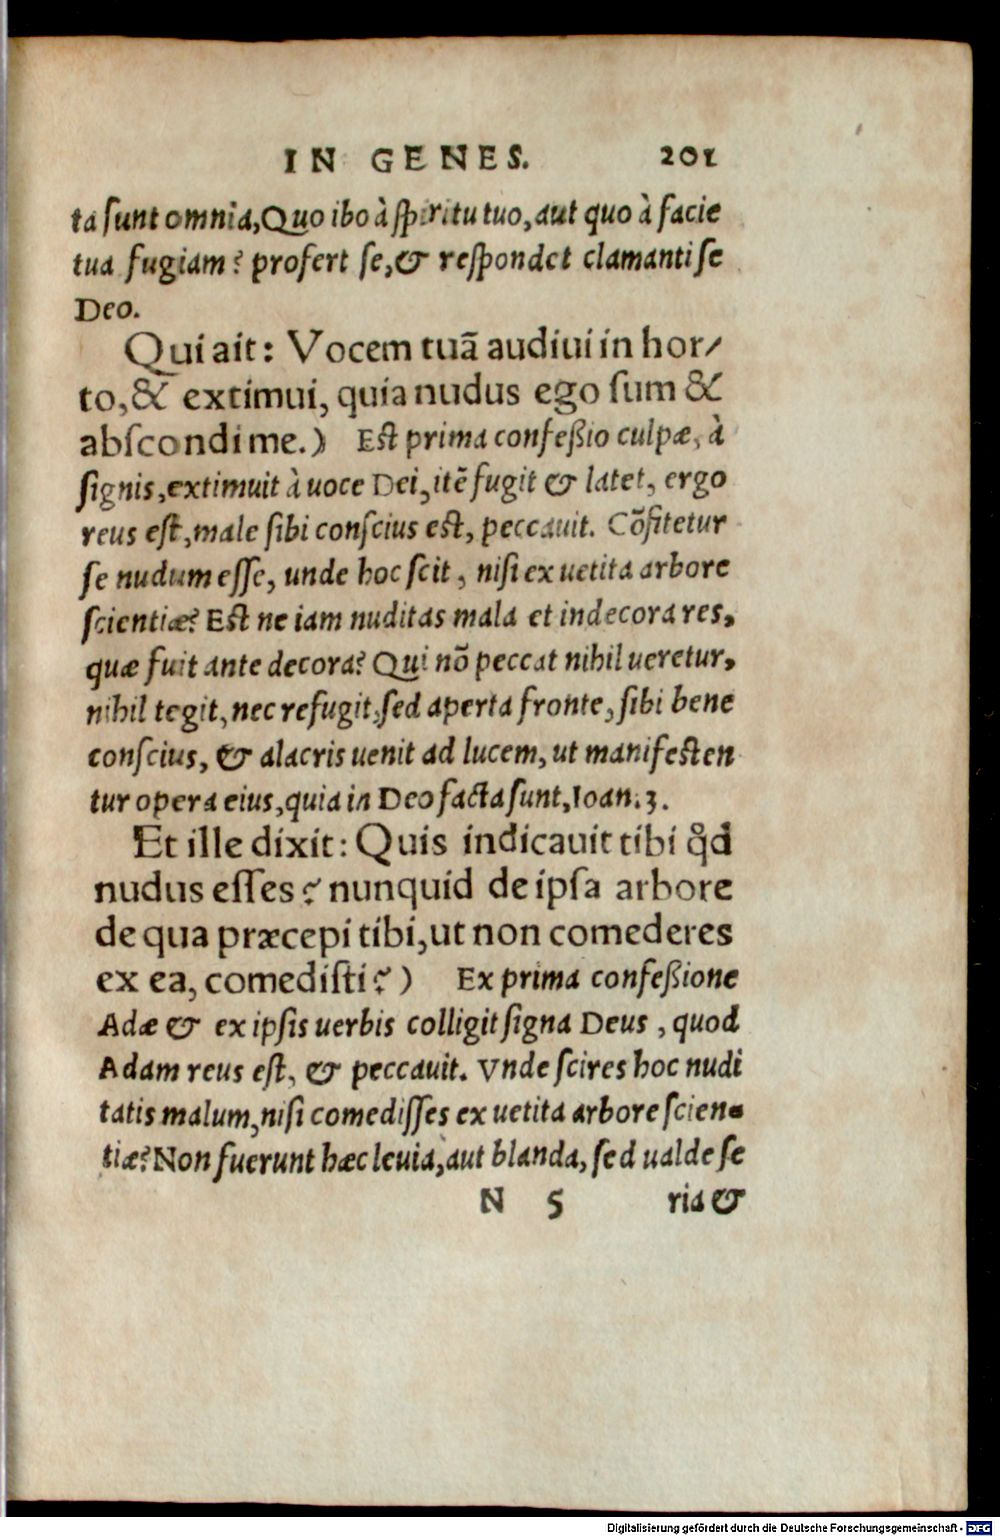 IN GENES. 201
ta ſunt omnia, Quo ibo à ſpiritu tuo, aut quo à facie
tua fugiam? profert ſe, & reſpondet clamanti ſe
Deo.
Qui ait: Vocem tuā audiui in hor/
to, & extimui, quia nudus ego ſum &
abſcondi me.) Eſt prima confeßio culpæ, à
ſignis, extimuit à uoce Dei, itē fugit & latet, ergo
reus eſt, male ſibi conſcius eſt, peccauit. Cōfitetur
ſe nudum eſſe, unde hoc ſcit, niſi ex uetita arbore
ſcientiæ? Eſt ne iam nuditas mala et indecora res,
quæ fuit ante decora? Qui nō peccat nihil ueretur,
nihil tegit, nec refugit, ſed aperta fronte, ſibi bene
conſcius, & alacris uenit ad lucem, ut manifeſten
tur opera eius, quia in Deo facta ſunt, Ioan. 3.
Et ille dixit: Quis indicauit tibi ꝙd
nudus eſſes? nunquid de ipſa arbore
de qua præcepi tibi, ut non comederes
ex ea, comediſti?) Ex prima confeßione
Adæ & ex ipſis uerbis colligit ſigna Deus, quod
Adam reus eſt, & peccauit. Vnde ſcires hoc nudi
tatis malum, niſi comediſſes ex uetita arbore ſcien-
tiæ? Non fuerunt hæc leuia, aut blanda, ſed ualde ſe
N 5 ria &
Digitalisierung gefördert durch die Deutsche Forschungsgemeinschaft - DFG